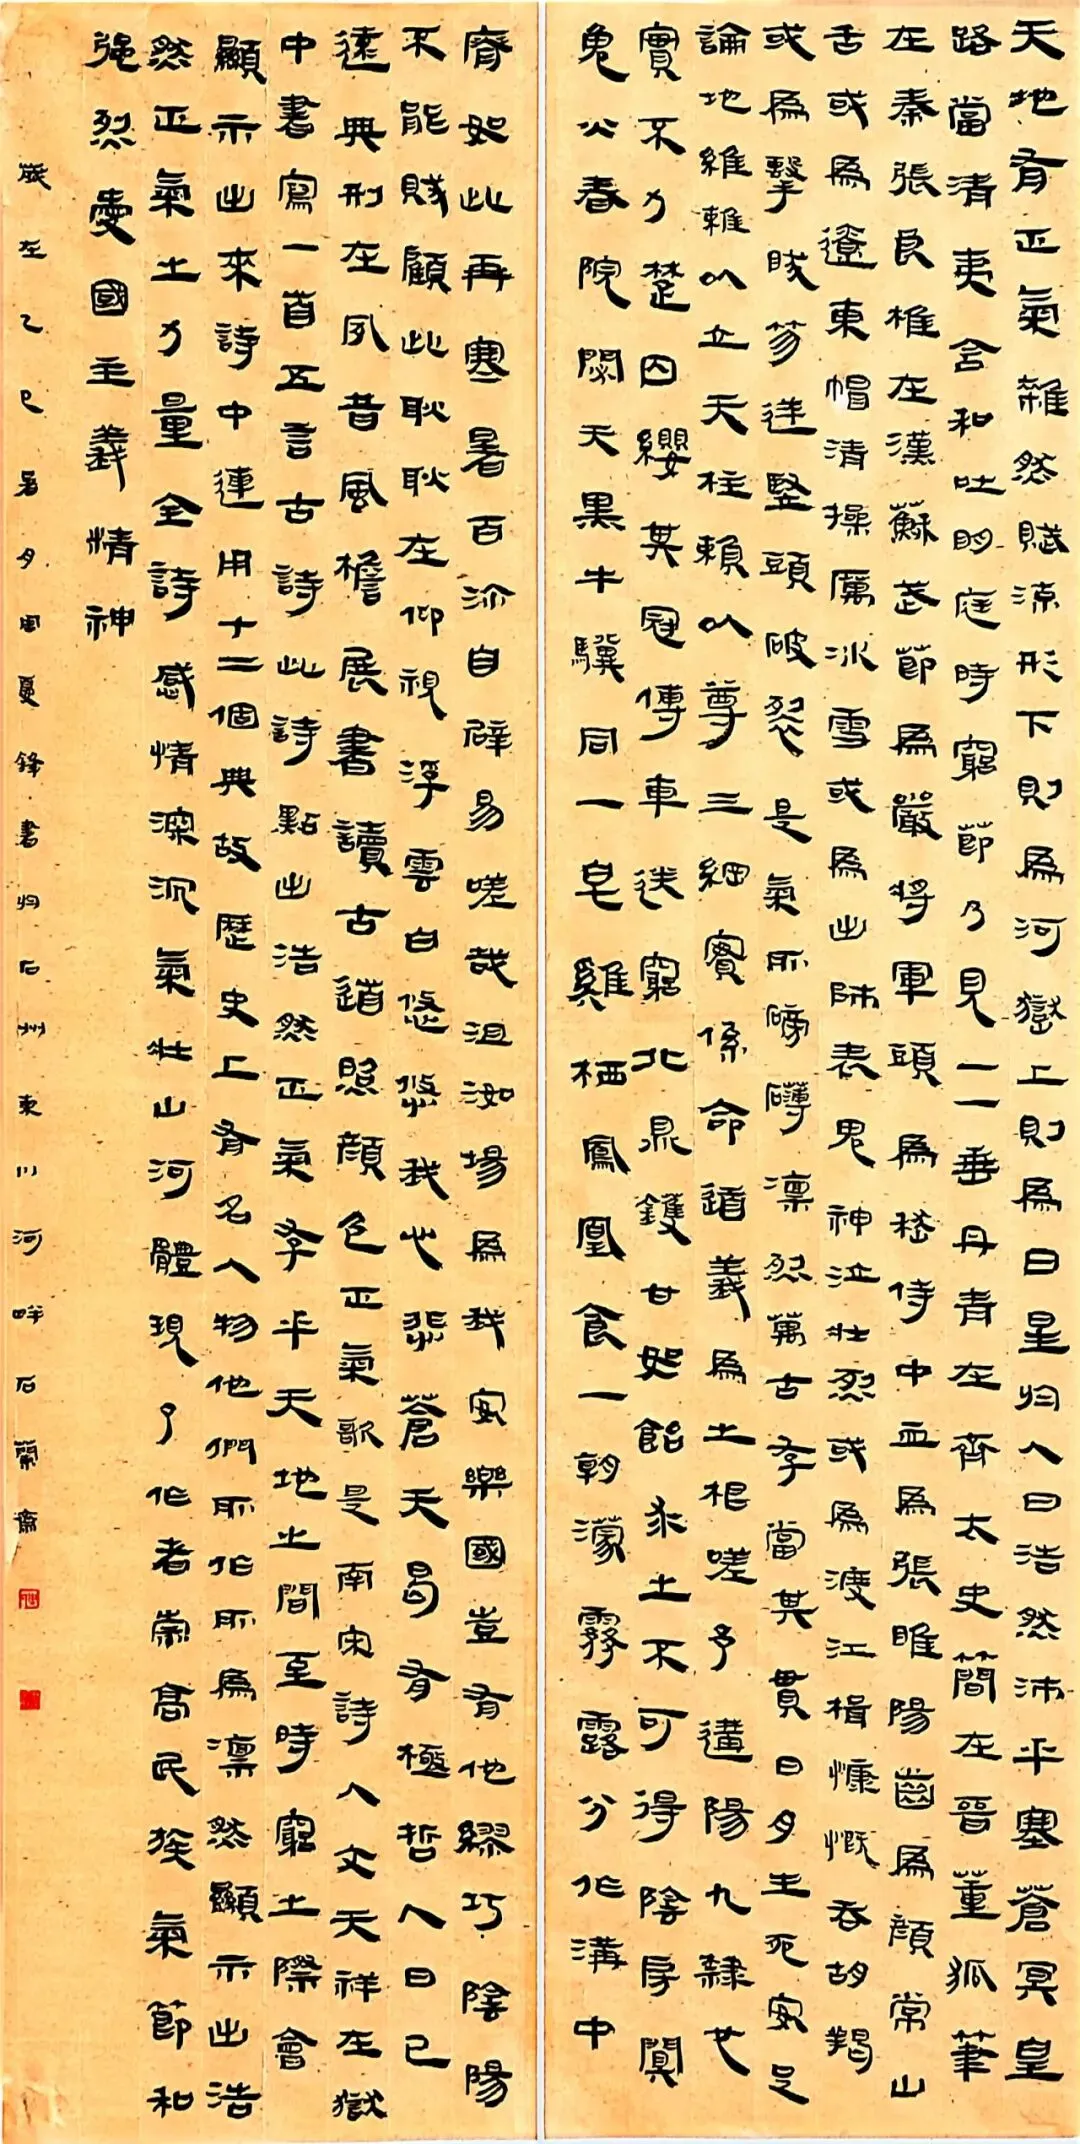 天地有正氣雜然賦流形下則為河嶽上則為日星於人曰浩然沛乎塞蒼冥皇
路當清夷含和吐明庭時窮節乃見一一垂丹青在齊太史簡在晉董狐筆
在秦張良椎在漢蘇武節為嚴將軍頭為嵇侍中血為張睢陽齒為顏常山
舌或為遼東帽清操厲冰雪或為出師表鬼神泣壯烈或為渡江楫慷慨吞胡羯
或為擊賊笏逆豎頭破裂是氣所磅礴凜烈萬古存當其貫日月生死安足
論地維賴以立天柱賴以尊三綱實係命道義為之根嗟予遘陽九隸也
實不力楚囚纓其冠傳車送窮北鼎鑊甘如飴求之不可得陰房闃
鬼火春院閟天黑牛驥同一皂雞栖鳳凰食一朝濛霧露分作溝中
瘠如此再寒暑百沴自辟易嗟哉沮洳場為我安樂國豈有他繆巧陰陽
不能賊顧此耿耿在仰視浮雲白悠悠我心悲蒼天曷有極哲人日已
遠典刑在夙昔風檐展書讀古道照顏色正氣歌是南宋詩人文天祥在獄
中書寫一首五言古詩此詩點出浩然正氣存乎天地之間至時窮之際會
顯示出來詩中連用十二個典故歷史上有名人物他們所作所為凜然顯示出浩
然正氣之力量全詩感情深沉氣壯山河體現了作者崇高民族氣節和
強烈愛國主義情神
歲在乙巳暑月周夏鋒書於石州東川河畔石蘭齋